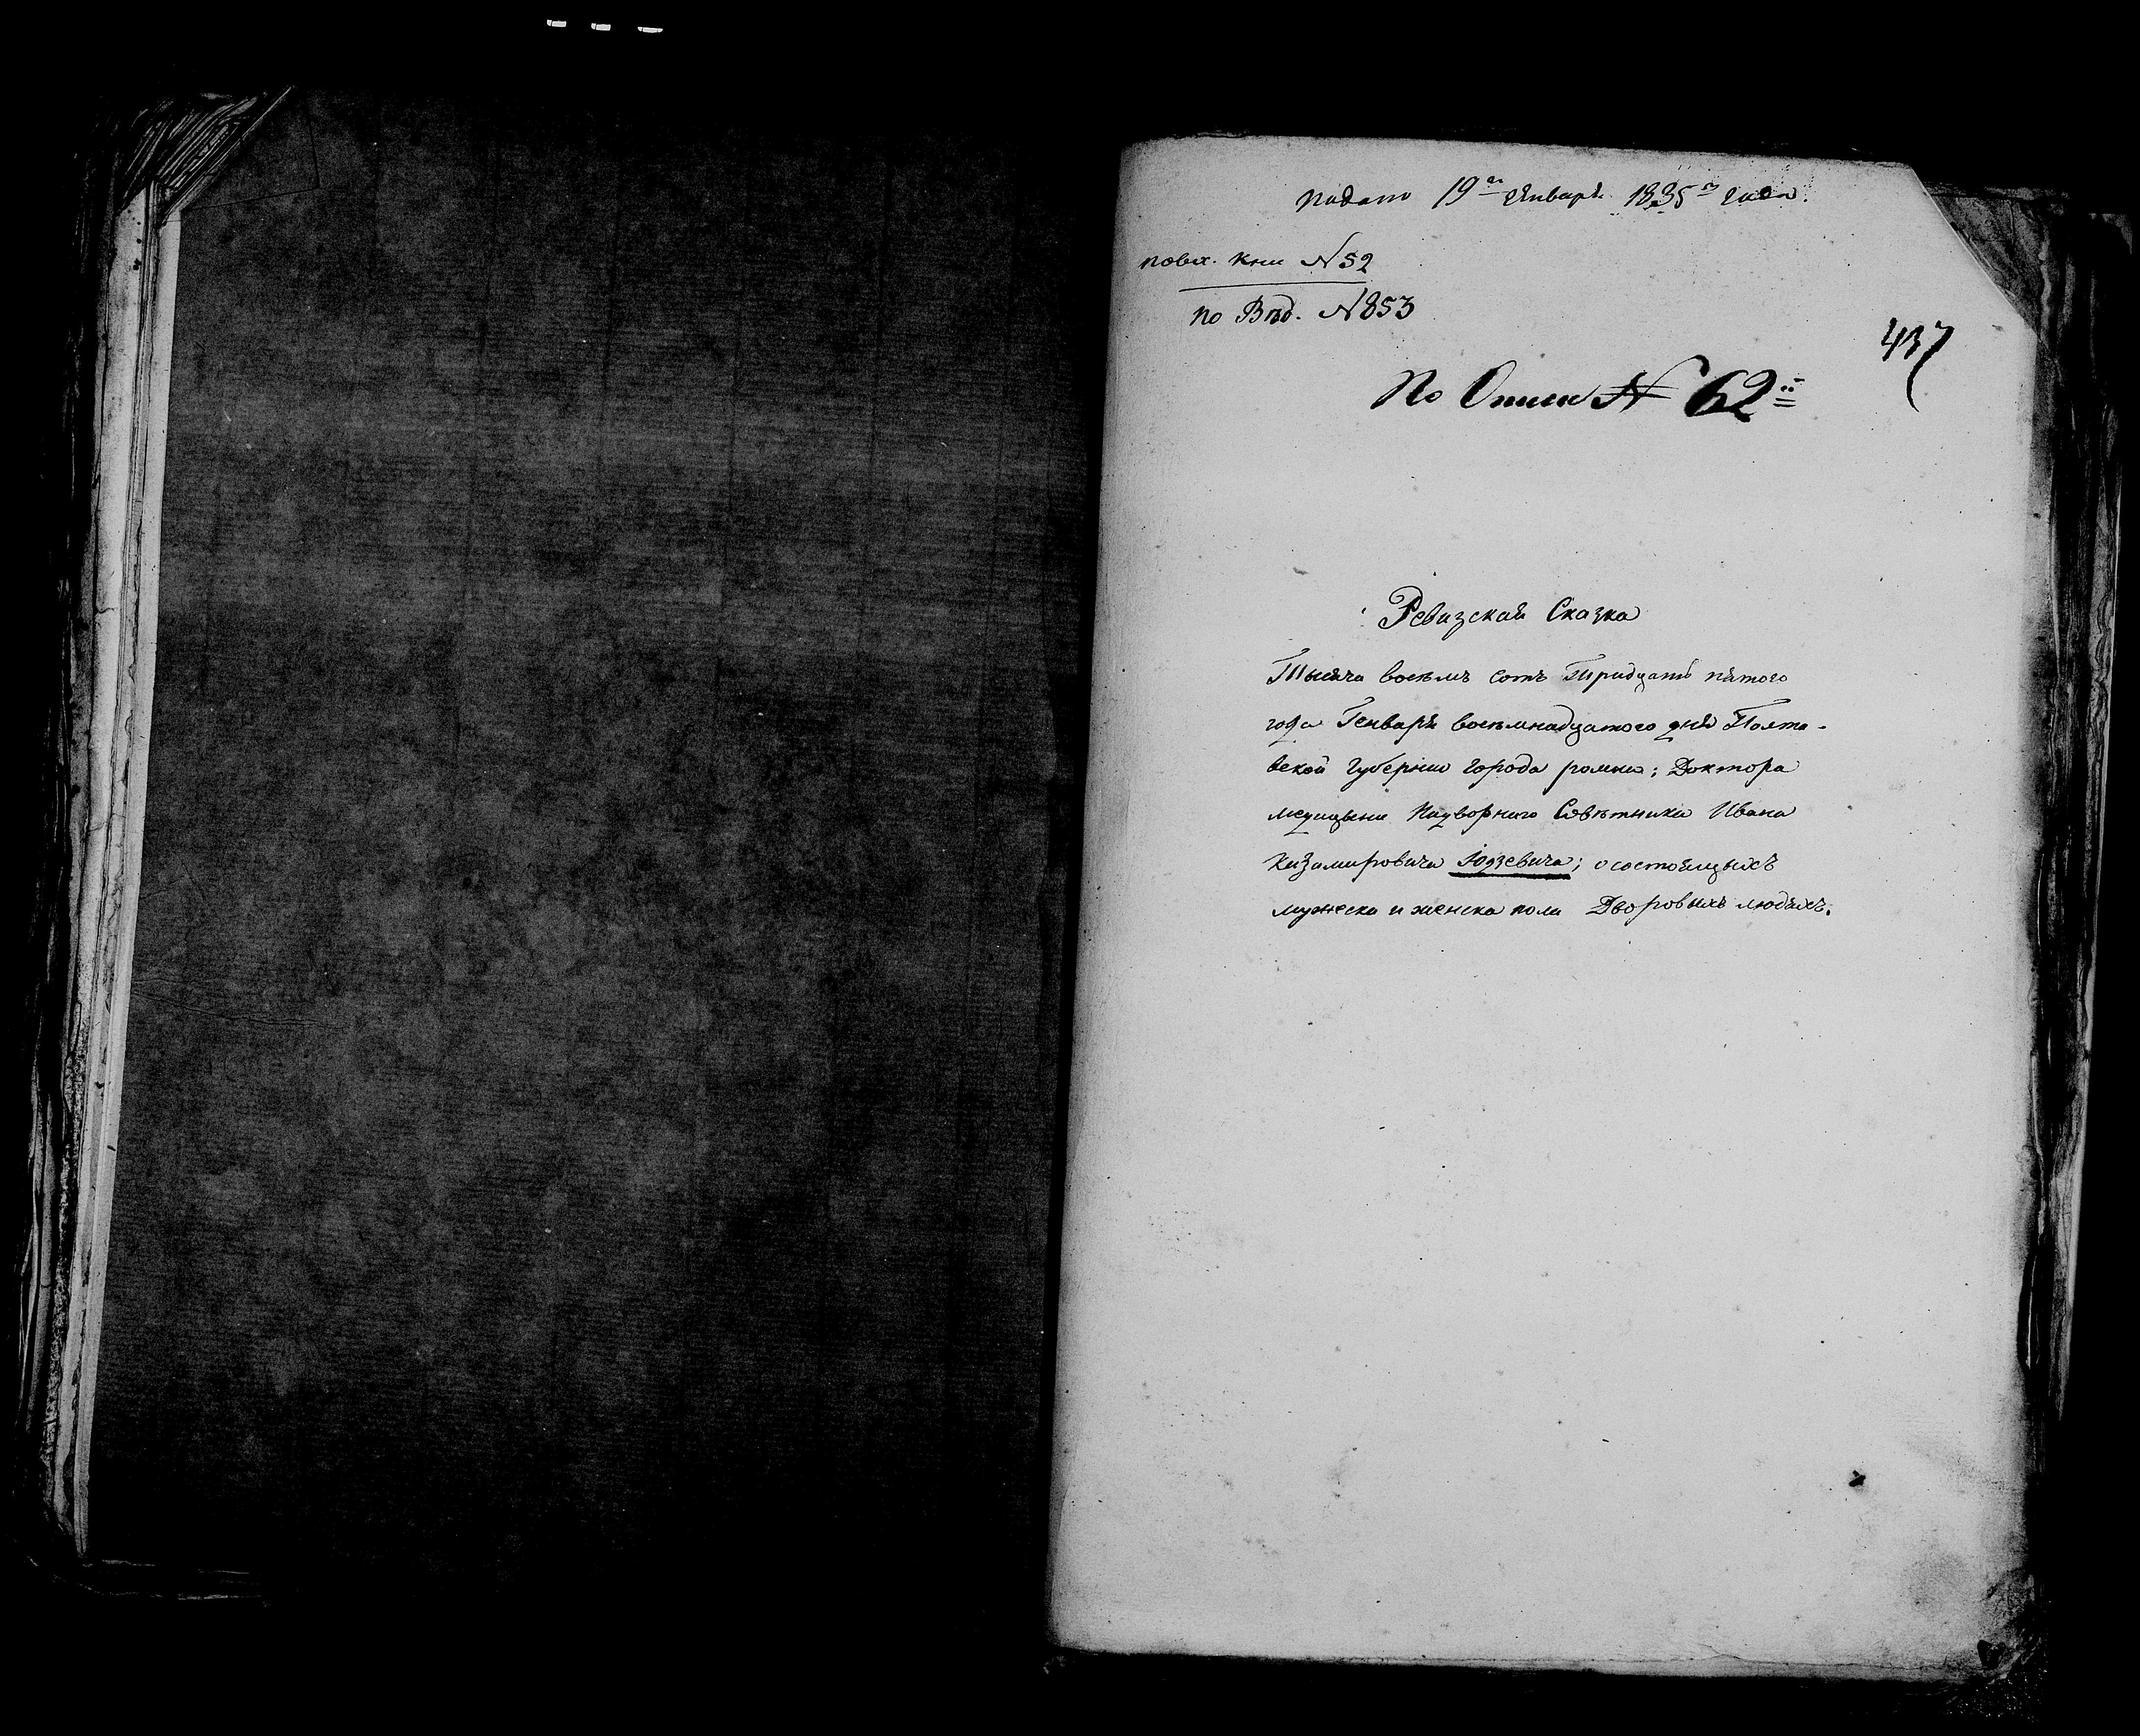 Подано 19го Генваря 1835го года.
по вх. кни №52
по Вѣд. №853
437
По Описи № 62й
Ревизская Сказка
Тысяча восемъ сотъ тридцать пятого
года Генваря восемнадцатого дня Полта-
вской губернии города ромна; Доктора
медицыни Надворнаго Совѣтника Ивана
Казамировича Юдзевича; о состоящыхъ
мужеска и женска пола Дворовыхъ людяхъ.